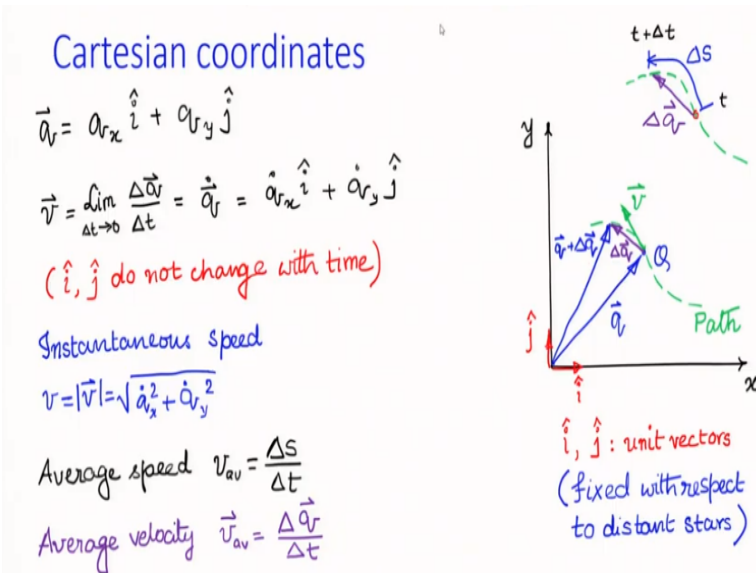 Cartesian coordinates
q⃗ = qₓ î + q_y ĵ
v⃗ = Lim Δt→0 Δq⃗/Δt = q̇⃗ = q̇ₓ î + q̇_y ĵ
(î, ĵ do not change with time)
Instantaneous speed
v = |v⃗| = √(q̇ₓ² + q̇_y²)
Average speed v_av = Δs/Δt
Average velocity v⃗_av = Δq⃗/Δt
t+Δt
Δs
t
Δq⃗
y
v⃗
q⃗+Δq⃗
Δq⃗
Q
q⃗
Path
ĵ
î
x
î, ĵ : unit vectors
(fixed with respect
to distant stars)